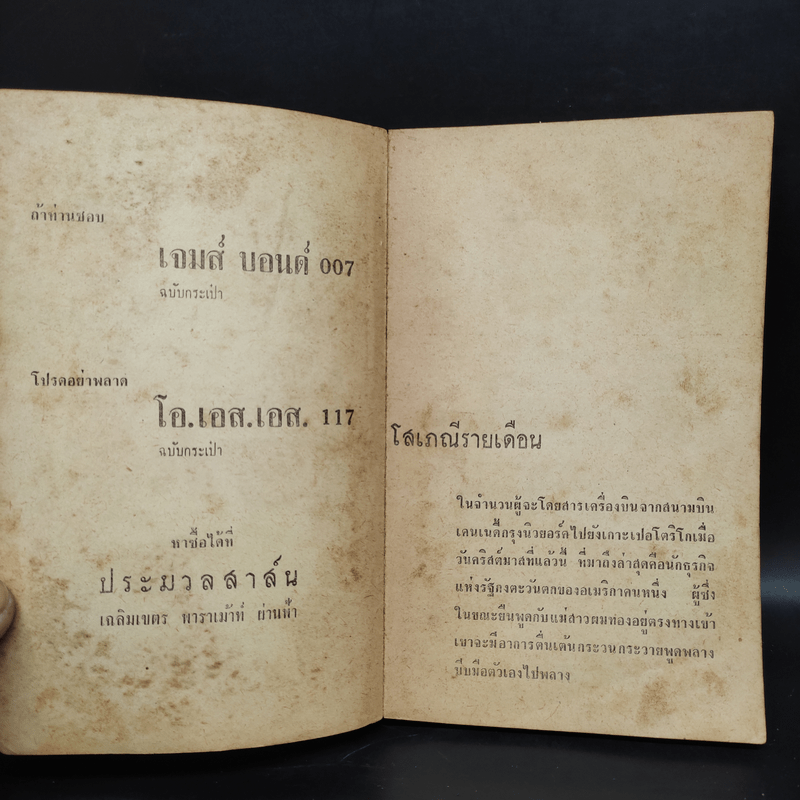 ถ้าท่านชอบ
เจมส์ บอนด์ 007
ฉบับกระเป๋า
โปรดอย่าพลาด
โอ.เอส.เอส. 117
ฉบับกระเป๋า
หาซื้อได้ที่
ประมวลสาส์น
เฉลิมเขตร พาราเม้าท์ ย่านฟ้า
โสเภณีรายเดือน
ในจำนวนผู้จะโดยสารเครื่องบินจากสนามบิน
เคนเนดี้กรุงนิวยอร์คไปยังเกาะเปอโตริโกเมื่อ
วันคริสต์มาสที่แล้วนี้ ที่มาถึงล่าสุดคือนักธุรกิจ
แห่งรัฐกงตะวันตกของอเมริกาคนหนึ่ง ผู้ซึ่ง
ในขณะยืนพูดกับแม่สาวผมทองอยู่ตรงทางเข้า
เขาจะมีอาการตื่นเต้นกระวนกระวายพูดพลาง
บีบมือตัวเองไปพลาง